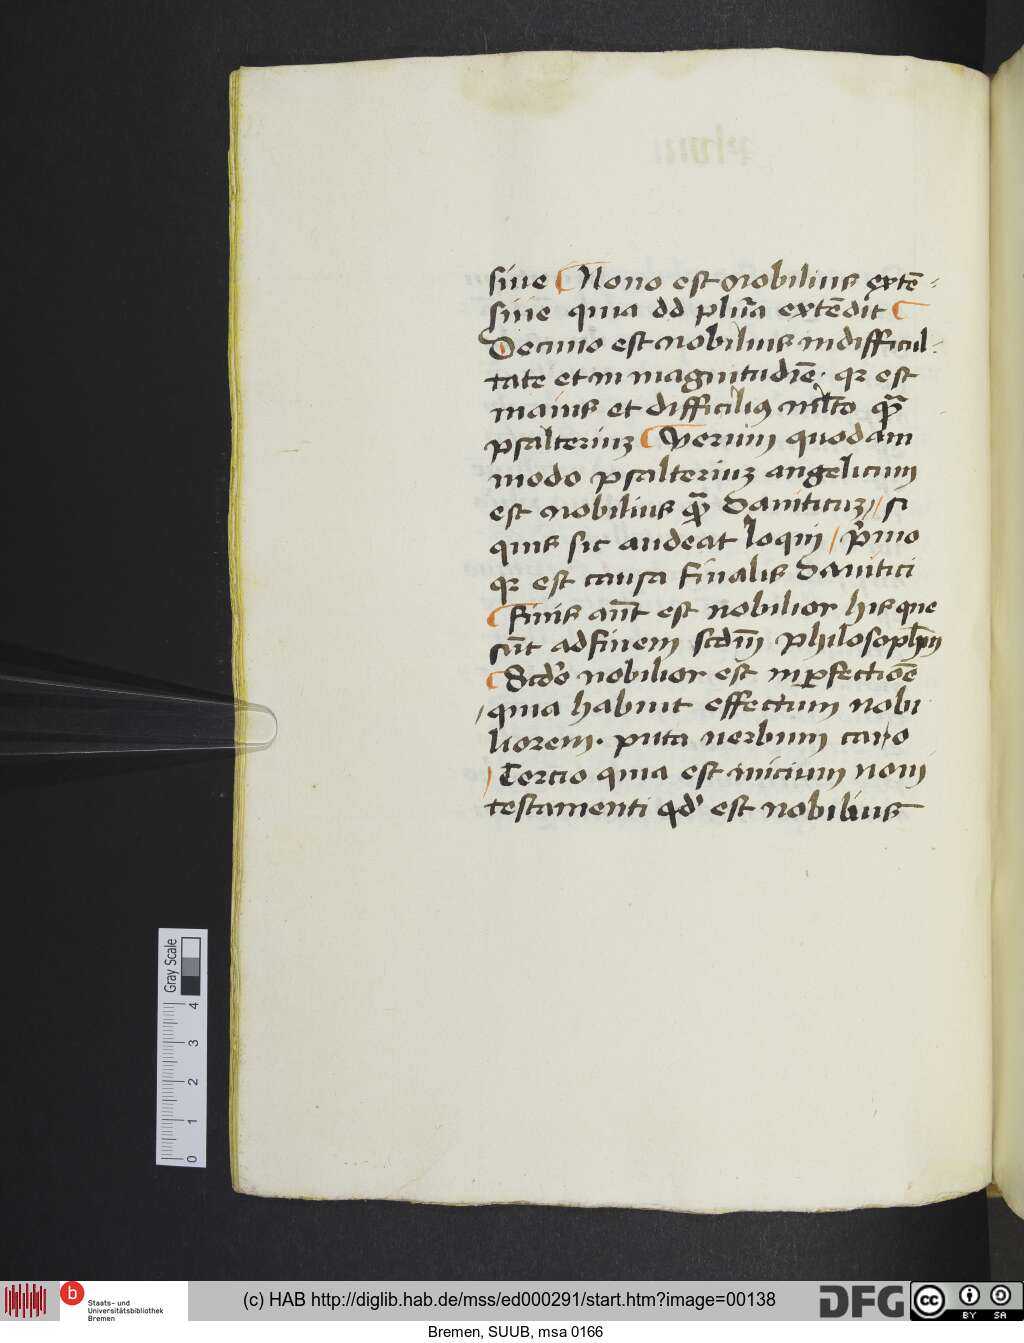 siue Nono est nobilius extē-
siue quia ad plura extēdit
Decimo est nobilius in difficul-
tate et in magnitudīe. qr est
maius et difficiliꝰ mĺto qua̅
psalteriuꝫ Verum quodam
modo psalteriuꝫ angelicum
est nobilius qua̅ dauiticuꝫ / si
quis sic audeat loqui / p̄mo
qr est causa finalis dauitici
Finis aūt est nobilior his que
sūt ad finem scdm̄ philosophum
Scdo nobilior est in ꝑfectiōe
quia habuit effectum nobi
liorem. puta uerbum caro
Tercio quia est inicium noui
testamenti qd' est nobilius
Gray Scale
0 1 2 3 4
b
Staats- und
Universitätsbibliothek
Bremen
(c) HAB http://diglib.hab.de/mss/ed000291/start.htm?image=00138
DFG
cc BY SA
Bremen, SUUB, msa 0166